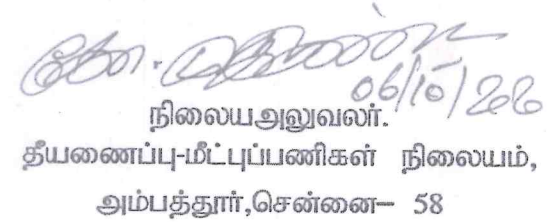 06/10/22
நிலையஅலுவலர்.
தீயணைப்பு-மீட்புப்பணிகள் நிலையம்,
அம்பத்தூர்,சென்னை– 58